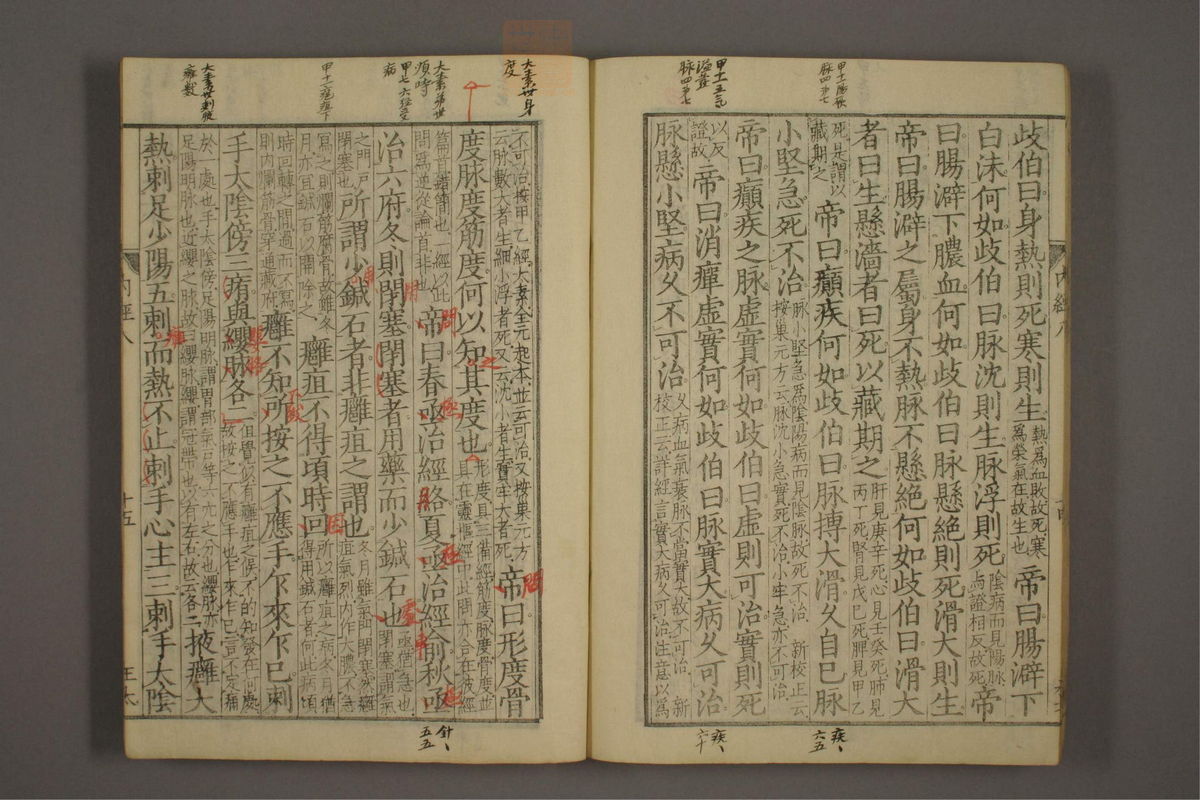 岐伯曰身熱則死寒則生熱爲血敗故死寒爲榮氣在故生也帝曰腸澼下
白沫何如岐伯曰脉沈則生脉浮則死陰病而見陽脉与證相反故死帝
曰腸澼下膿血何如岐伯曰脉懸絕則死滑大則生
帝曰腸澼之屬身不熱脉不懸絕何如岐伯曰滑大
者曰生懸濇者曰死以藏期之肝見庚辛死心見壬癸死肺見丙丁死腎見戊己死脾見甲乙
死是謂以藏期之帝曰癲疾何如岐伯曰脉搏大滑久自已脉
小堅急死不治脉小堅急爲陰陽病而見陰脉故死不治新校正云按巢元方云脉沈小急實死不治小牢急亦不可治
帝曰癲疾之脉虛實何如岐伯曰虛則可治實則死
以反證故帝曰消癉虛實何如岐伯曰脉實大病久可治
脉懸小堅病久不可治久病血氣衰脉不當實大故不可治新校正云詳經言實大病久可治注意以爲
不可治按甲乙經大素全元起本並云可治又按巢元方云脉數大者生細小浮者死又云沈小者生實牢大者死帝曰形度骨
度脉度筋度何以知其度也形度具三備經筋度脉度骨度並具在靈樞經中此問亦合在彼經
篇首錯簡也一經以此問爲逆從論首非也帝曰春亟治經絡夏亟治經俞秋亟
治六府冬則閉塞閉塞者用藥而少鍼石也亟猶急也閉塞謂氣
之門戶閉塞也所謂少鍼石者非癰疽之謂也冬月雖氣門閉塞然癰疽氣烈内作大膿不急
寫之則爛筋腐骨故雖冬月亦宜鍼石以開除之癰疽不得頃時回所以癰疽之病冬月猶得用鍼石者何此病頃
時回轉之間過而不寫則内爛筋骨穿通藏府癰不知所按之不應手乍來乍已刺
手太陰傍三痏與纓脉各二但覺似有癰疽之候不的知發在何處故按之不應手也乍來乍已言不定痛
於一處也手太陰傍足陽明脉謂胃部氣戶等六穴之分也纓脉亦足陽明脉也近纓之脉故曰纓脉纓謂冠帶也以有左右故云各二掖癰大
熱刺足少陽五刺而熱不止刺手心主三刺手太陰
内經八
十五